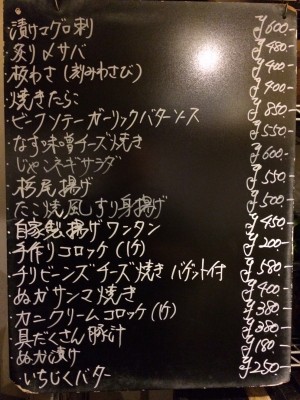 ・漬けマグロ刺 ¥600-
・炙り〆サバ ¥480-
・板わさ(刻みわさび) ¥400-
・焼きたらこ ¥400-
・ビーフソテーガーリックバターソース ¥850-
・なす味噌チーズ焼き ¥550-
・じゃこネギサラダ ¥600-
・栃尾揚げ ¥550-
・たこ焼風すり身揚げ ¥500-
・自家製揚げワンタン ¥450-
・手作りコロッケ(1ケ) ¥200-
・チリビーンズチーズ焼き バゲット付 ¥580-
・ぬかサンマ焼き ¥400-
・カニクリームコロッケ(1ケ) ¥380-
・具だくさん豚汁 ¥380-
・ぬか漬け ¥180-
・いちじくバター ¥250-